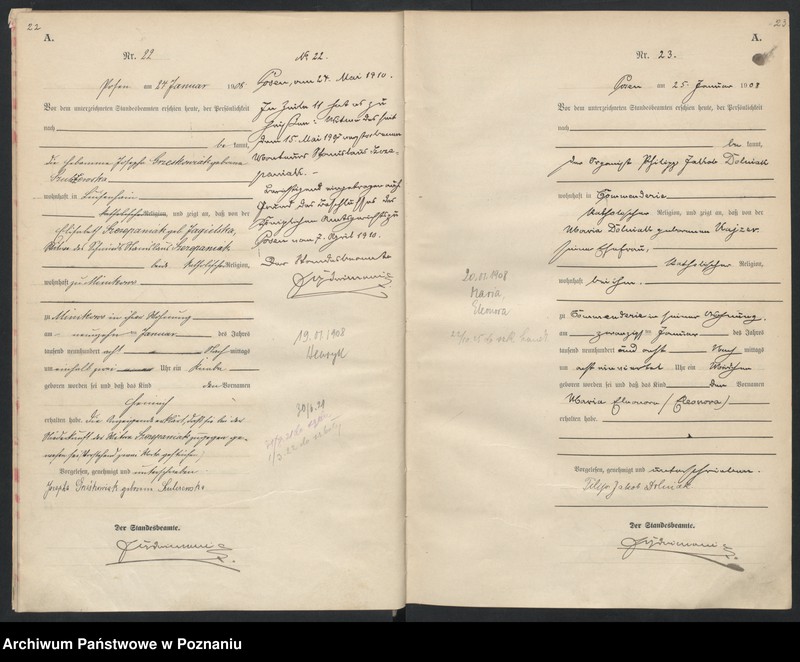 22
A.
Nr. 22
Posen am 24 Januar 1908
Vor dem unterzeichneten Standesbeamten erschien heute, der Persönlichkeit
nach
be kannt,
die Hebamme Josepha Grzeskowiak geborene
wohnhaft in
katholischer Religion, und zeigt an, daß von der
Elisabeth Szczepaniak geb. Jagielska,
Witwe des Schmieds Stanislaus Szczepaniak
beide katholischer Religion,
wohnhaft zu Minikowo
zu Minikowo in ihrer Wohnung
am neunzehnten Januar des Jahres
tausend neunhundert acht Nach mittags
um einhalb zwei Uhr ein Knabe
geboren worden sei und daß das Kind den Vornamen
Heinrich
erhalten habe. Die Anzeigende erklärt, daß sie bei der
Niederkunft der Witwe Szczepaniak zugegen ge-
wesen sei.
Vorgelesen, genehmigt und unterschrieben
Josepha Grześkowiak geborene
Der Standesbeamte.
No. 22.
Posen, am 24. Mai 1910.
In Zeile 11 hat es zu
heißen: Witwe des seit
dem 15. Mai 1907 verstorbenen
Monteurs Stanislaus Szcze-
paniak. –
Berichtigend eingetragen auf
Grund des Beschlusses des
Königlichen Amtsgerichts zu
Posen vom 7. April 1910.
Der Standesbeamte
19.01.1908
Henryk
23
A.
Nr. 23.
Posen am 25. Januar 1908
Vor dem unterzeichneten Standesbeamten erschien heute, der Persönlichkeit
nach
be kannt,
der Organist Philipp Jakob Dolniak
wohnhaft in Commenderie
katholischer Religion, und zeigt an, daß von der
Maria Dolniak geborenen
seiner Ehefrau,
katholischer Religion,
wohnhaft bei ihm.
zu Commenderie in seiner Wohnung
am zwanzigsten Januar des Jahres
tausend neunhundert und acht Vor mittags
um acht einviertel Uhr ein Mädchen
geboren worden sei und daß das Kind den Vornamen
Maria Eleonora (Eleonora)
erhalten habe.
Vorgelesen, genehmigt und unterschrieben.
Filip Jakob Dolniak
Der Standesbeamte.
20.01.1908
Maria,
Eleonora
Archiwum Państwowe w Poznaniu